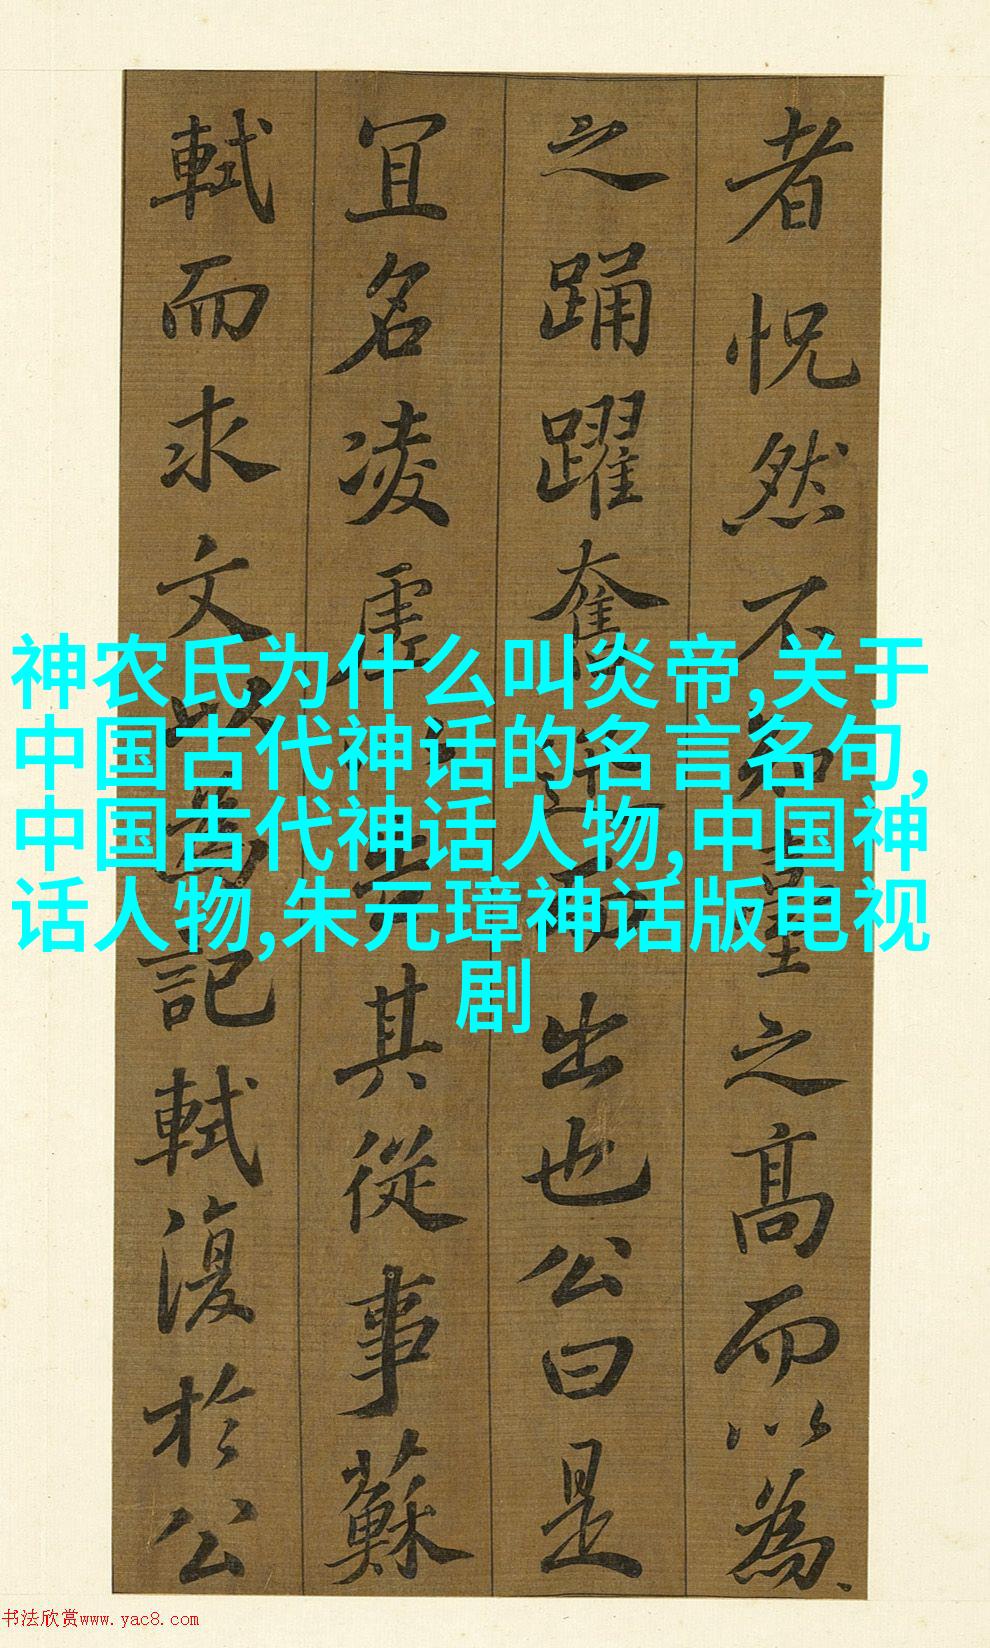 者怳然不知臺之高而以為
之踊躍奮迅而出也公曰是
冝名凌虛以告其從事蘇
軾而求文以為記軾復於公
神农氏为什么叫炎帝,关于
中国古代神话的名言名句,
中国古代神话人物,中国神
话人物,朱元璋神话版电视
剧
书法欣赏www.yac8.com